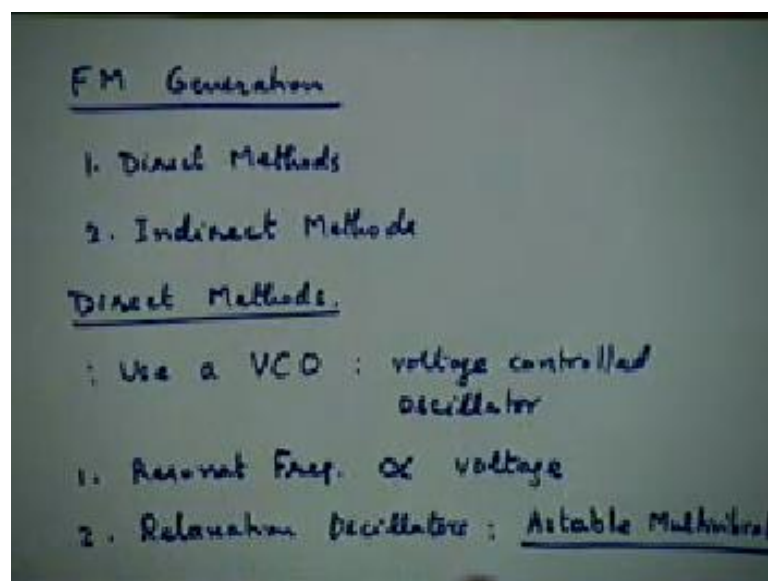 FM Generation
1. Direct Methods
2. Indirect Methods
Direct Methods.
: Use a VCO : voltage controlled
oscillator
1. Resonat Freq. ∝ voltage
2. Relaxation Oscillators : Astable Multivibrat